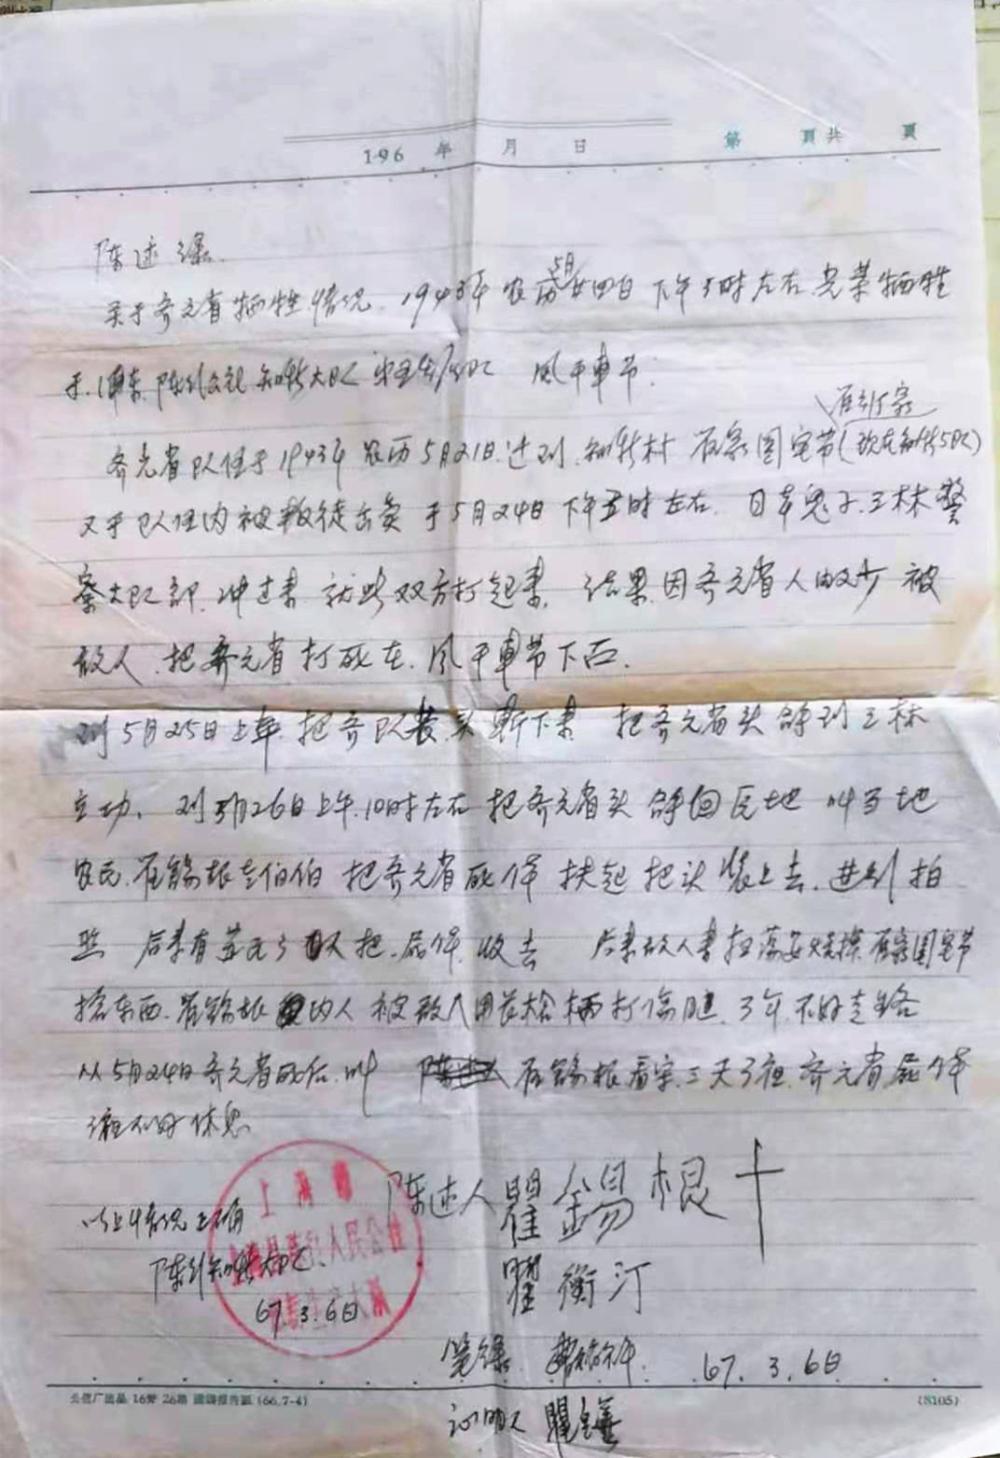 196 年 月 日 第 頁共 頁
陈述录
关于齐元省牺牲情况. 1943年 农历5月廿四日 下午5时左右 光荣牺牲
于 浦东 陈行公社 知新大队 风干車节.
瞿引家
齐元省队任于1943年 农历5月21日 过到 知新村 瞿家圈宅节(现在知新5队)
又于队任内被叛徒出卖 于5月24日下午五时左右. 日本鬼子 三林警
察大队部. 冲过来 就此双方打起来. 结果因齐元省人员少 被
敌人 把齐元省打死在. 风干車节下面.
到5月25日上午. 把齐队 头斩下来 把齐元省头 拿到三林
立功. 到5月26日上午.10时左右 把齐元省头 拿回民地 叫当地
农民. 瞿錫根老伯伯 把齐元省死体 扶起 把头装上去. 进行拍
照 后来有 人把 屍体 收去 后来敌人来扫荡 瞿家圈宅节
搶东西. 瞿錫根 的人 被敌人用长枪柄打伤腿. 3年. 不好走路
从5月24日齐元省死后. 叫 瞿錫根看守. 三天3夜. 齐元省屍体
不好休息
陈述人 瞿錫根 十
以上情况正确
陈行知新大队
67.3.6日
上海 人民公社
瞿衡汀
笔录 67.3.6日
公信厂出品 16开 26路 報告紙 (66.7-4) (8105)
证明人 瞿